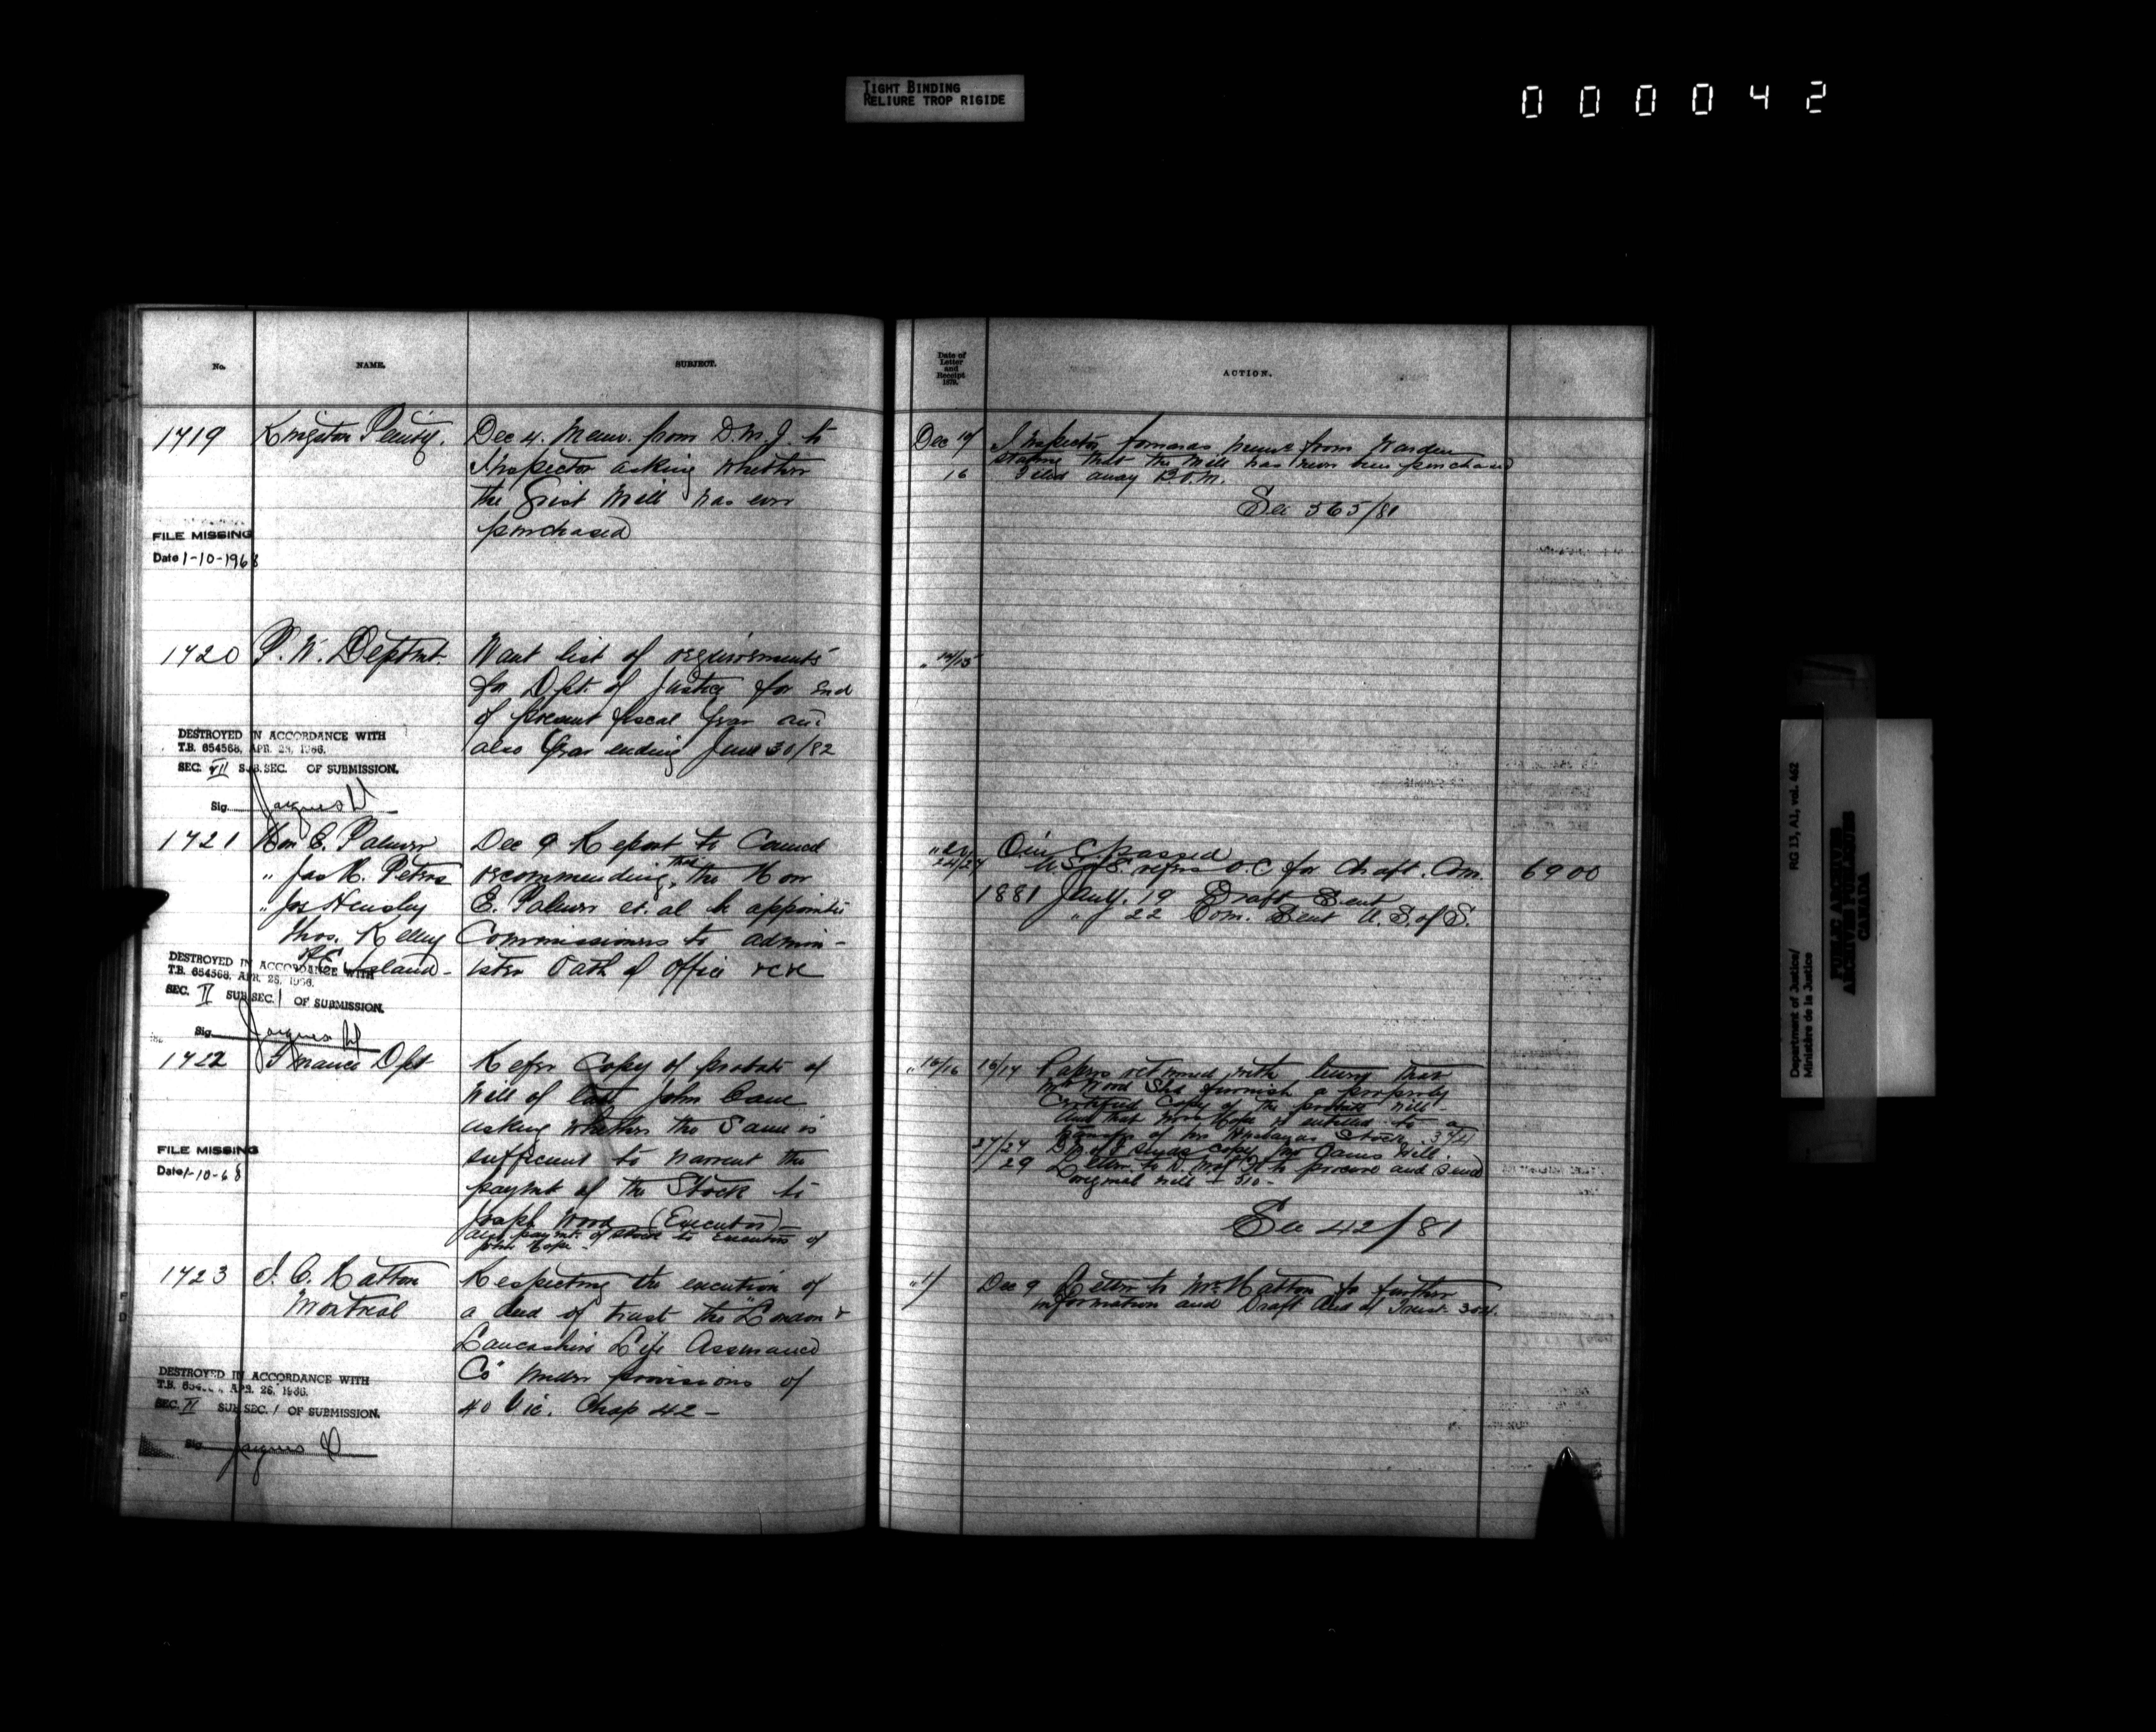 TIGHT BINDING
RELIURE TROP RIGIDE
000042
No.
NAME.
SUBJECT.
1719
Kingston Penity.
Dec 4. Memo. from D.M.J. to
Inspector asking whether
the Grist Mill has ever
purchased
FILE MISSING
Date 1-10-1968
1720
P. W. Deptmt.
Want list of requirements
for Dpt. of Justice for end
of present fiscal year and
also year ending June 30/82
DESTROYED IN ACCORDANCE WITH
T.B. 654568, APR. 26, 1966.
SEC. VII SUB.SEC. OF SUBMISSION.
Sig.
1721
Hon E. Palmer
" Jas H. Peters
" Jos Hensley
Thos. Kelly
P.E. Island -
Dec 9 Report to Council
recommending that the Hon
E. Palmer et. al be appointed
Commissioners to admin-
ister Oath of Office &c &c
DESTROYED IN ACCORDANCE WITH
T.B. 654568, APR. 26, 1966.
SEC. II SUB.SEC. 1 OF SUBMISSION.
Sig.
1722
Finance Dpt
Refer Copy of probate of
Will of late John Cane
asking whether the same is
sufficient to warrent the
paymt of the Stock to
Joseph Wood (Executor) -
also paymt. of stock to Executors of
John Hope -
FILE MISSING
Date 1-10-68
1723
J. C. Hatton
Montreal
Respecting the execution of
a deed of trust the "London &
Lancashire Life Assurance
Co" under provisions of
40 Vic. Chap 42 -
DESTROYED IN ACCORDANCE WITH
T.B. 654568, APR. 26, 1966.
SEC. II SUB.SEC. 1 OF SUBMISSION.
Sig.
Date of
Letter
and
Receipt
1879.
ACTION.
Dec
Inspector forwards memo from Warden
stating that the Mill has never been purchased
16 Filed away
See 365/81
" 14/15
O in C passed
" 24/27 U.S. of S. refers O.C for draft. Com. 6900
1881 Jany. 19 Draft Sent
" 22 Com. Sent U.S. of S.
" 15/16
Papers returned with
Mr Wood shd furnish a properly
Certified Copy of the probate will -
and that Mrs Hope is entitled to a
transfer of her Husbands Stock.
27/27 sends copy Mr Canes Will.
29 Letter to to procure and send
original will - 310 -
See 42/81
Dec 9 Letter to Mr. Hatton for further
information and Draft deed of Trust 304.
Department of Justice/
Ministère de la Justice
RG 13, A1, vol. 462
PUBLIC ARCHIVES
ARCHIVES PUBLIQUES
CANADA